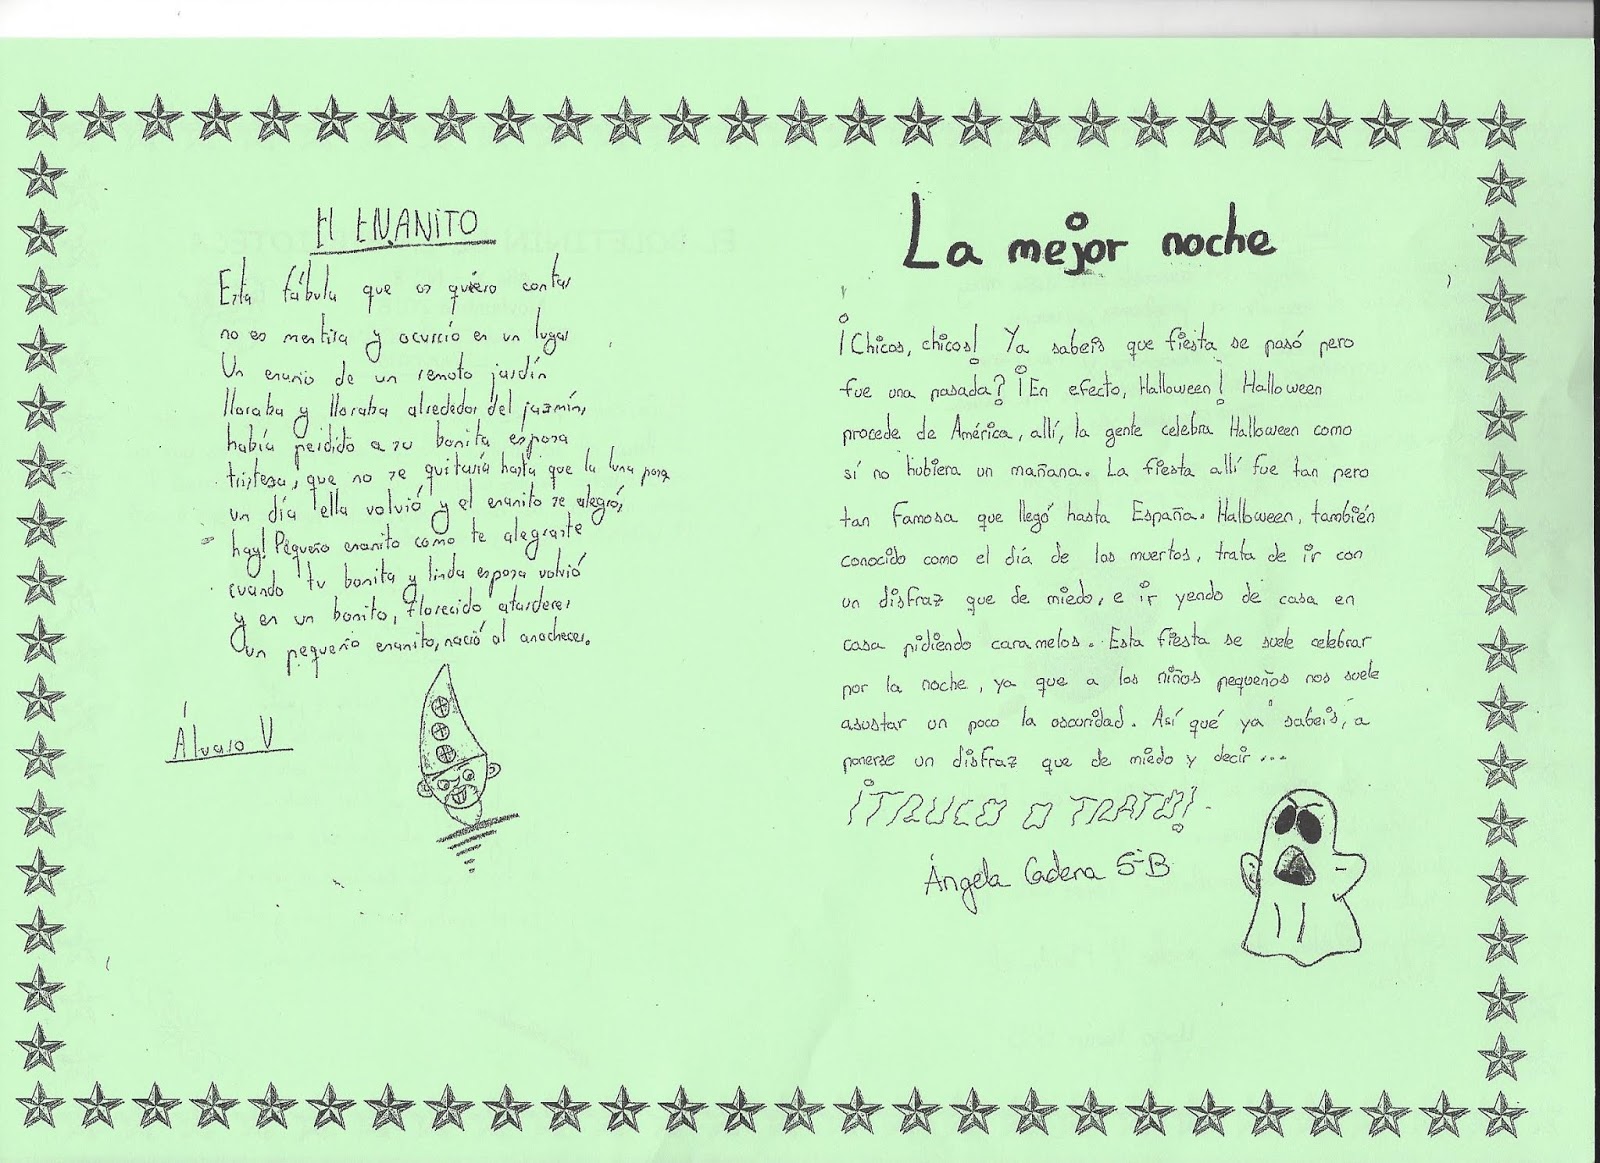 El ENANiTO
Esta fábula que os quiero contar
no es mentira y ocurrió en un lugar
Un enano de un remoto jardín
lloraba y lloraba alrededor del jazmín,
había perdido a su bonita esposa
tristeza, que no se quitaría hasta que la luna posa
un día ella volvió y el enanito se alegró,
hay! Pequeño enanito como te alegraste
cuando tu bonita y linda esposa volvió
y en un bonito, florecido atardecer
un pequeño enanito, nació al anochecer.
Álvaro V
La mejor noche
¡Chicos, chicos! Ya sabeis que fiesta se pasó pero
fue una pasada? ¡En efecto, Halloween! Halloween
procede de América, allí, la gente celebra Halloween como
sí no hubiera un mañana. La fiesta allí fue tan pero
tan famosa que llegó hasta España. Halloween, también
conocido como el día de los muertos, trata de ir con
un disfraz que de miedo, e ir yendo de casa en
casa pidiendo caramelos. Esta fiesta se suele celebrar
por la noche, ya que a los niños pequeños nos suele
asustar un poco la oscuridad. Así qué ya sabeis, a
ponerse un disfraz que de miedo y decir...
¡TRUCO O TRATO!
Ángela Cadena 5ºB